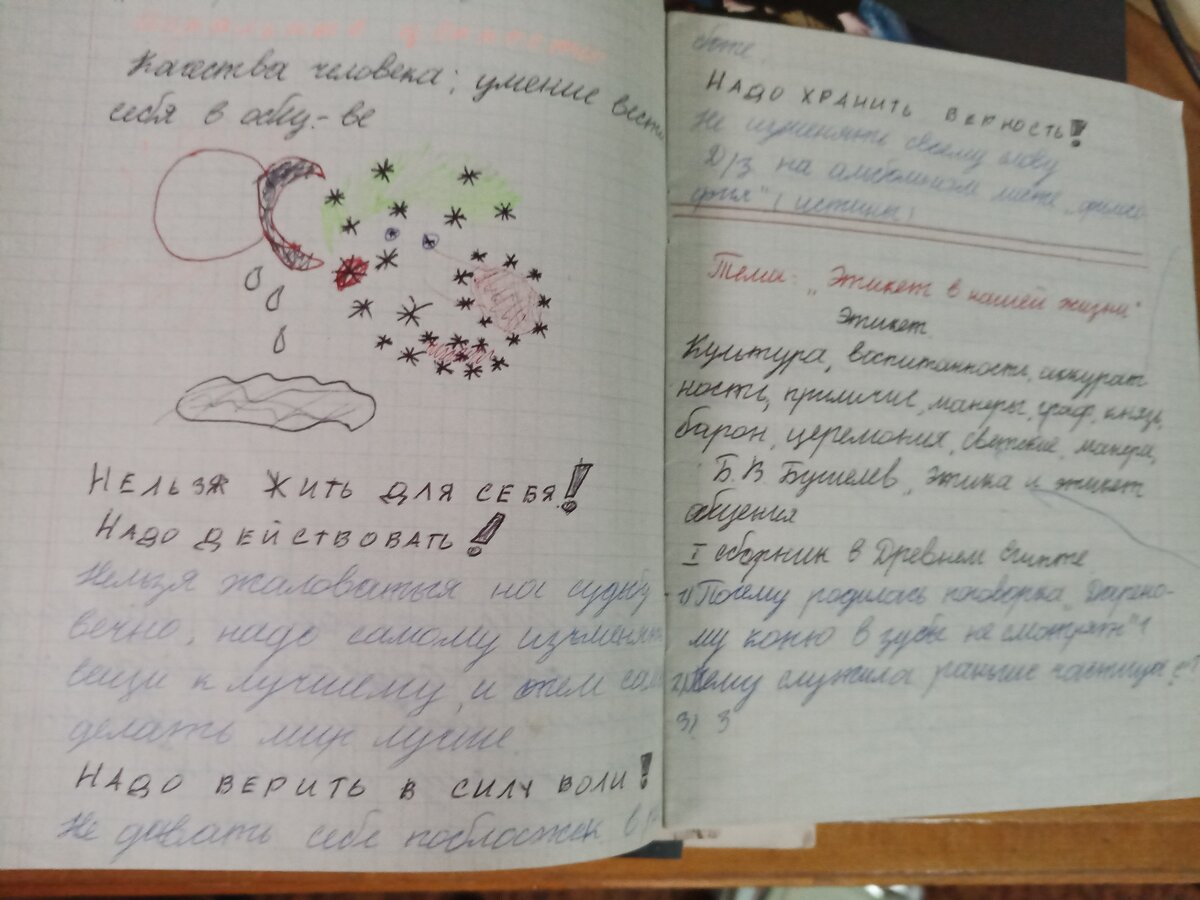 Качества человека; умение вести
себя в общ.-ве
НЕЛЬЗЯ ЖИТЬ ДЛЯ СЕБЯ!
НАДО ДЕЙСТВОВАТЬ!
Нельзя жаловаться на судьбу
вечно, надо самому изменять
вещи к лучшему, и тем сам
делать мир лучше.
НАДО ВЕРИТЬ В СИЛУ ВОЛИ!
Не давать себе поблажек в
НАДО ХРАНИТЬ ВЕРНОСТЬ!
Не изменять своему слову
Д/З на альбомном листе „филосо-
фия" (истины)
Тема: „Этикет в нашей жизни"
Этикет.
Культура, воспитанность, аккурат
ность, приличие, манеры, граф, князь,
барон, церемония, светские, манера,
Б. В Бушелев „Этика и этикет
общения
I сборник в Древнем Египте
1) Почему родилась поговорка „Дарено-
му коню в зубы не смотрят"?
2) Чему служила раньше частица „съ"
3) 3